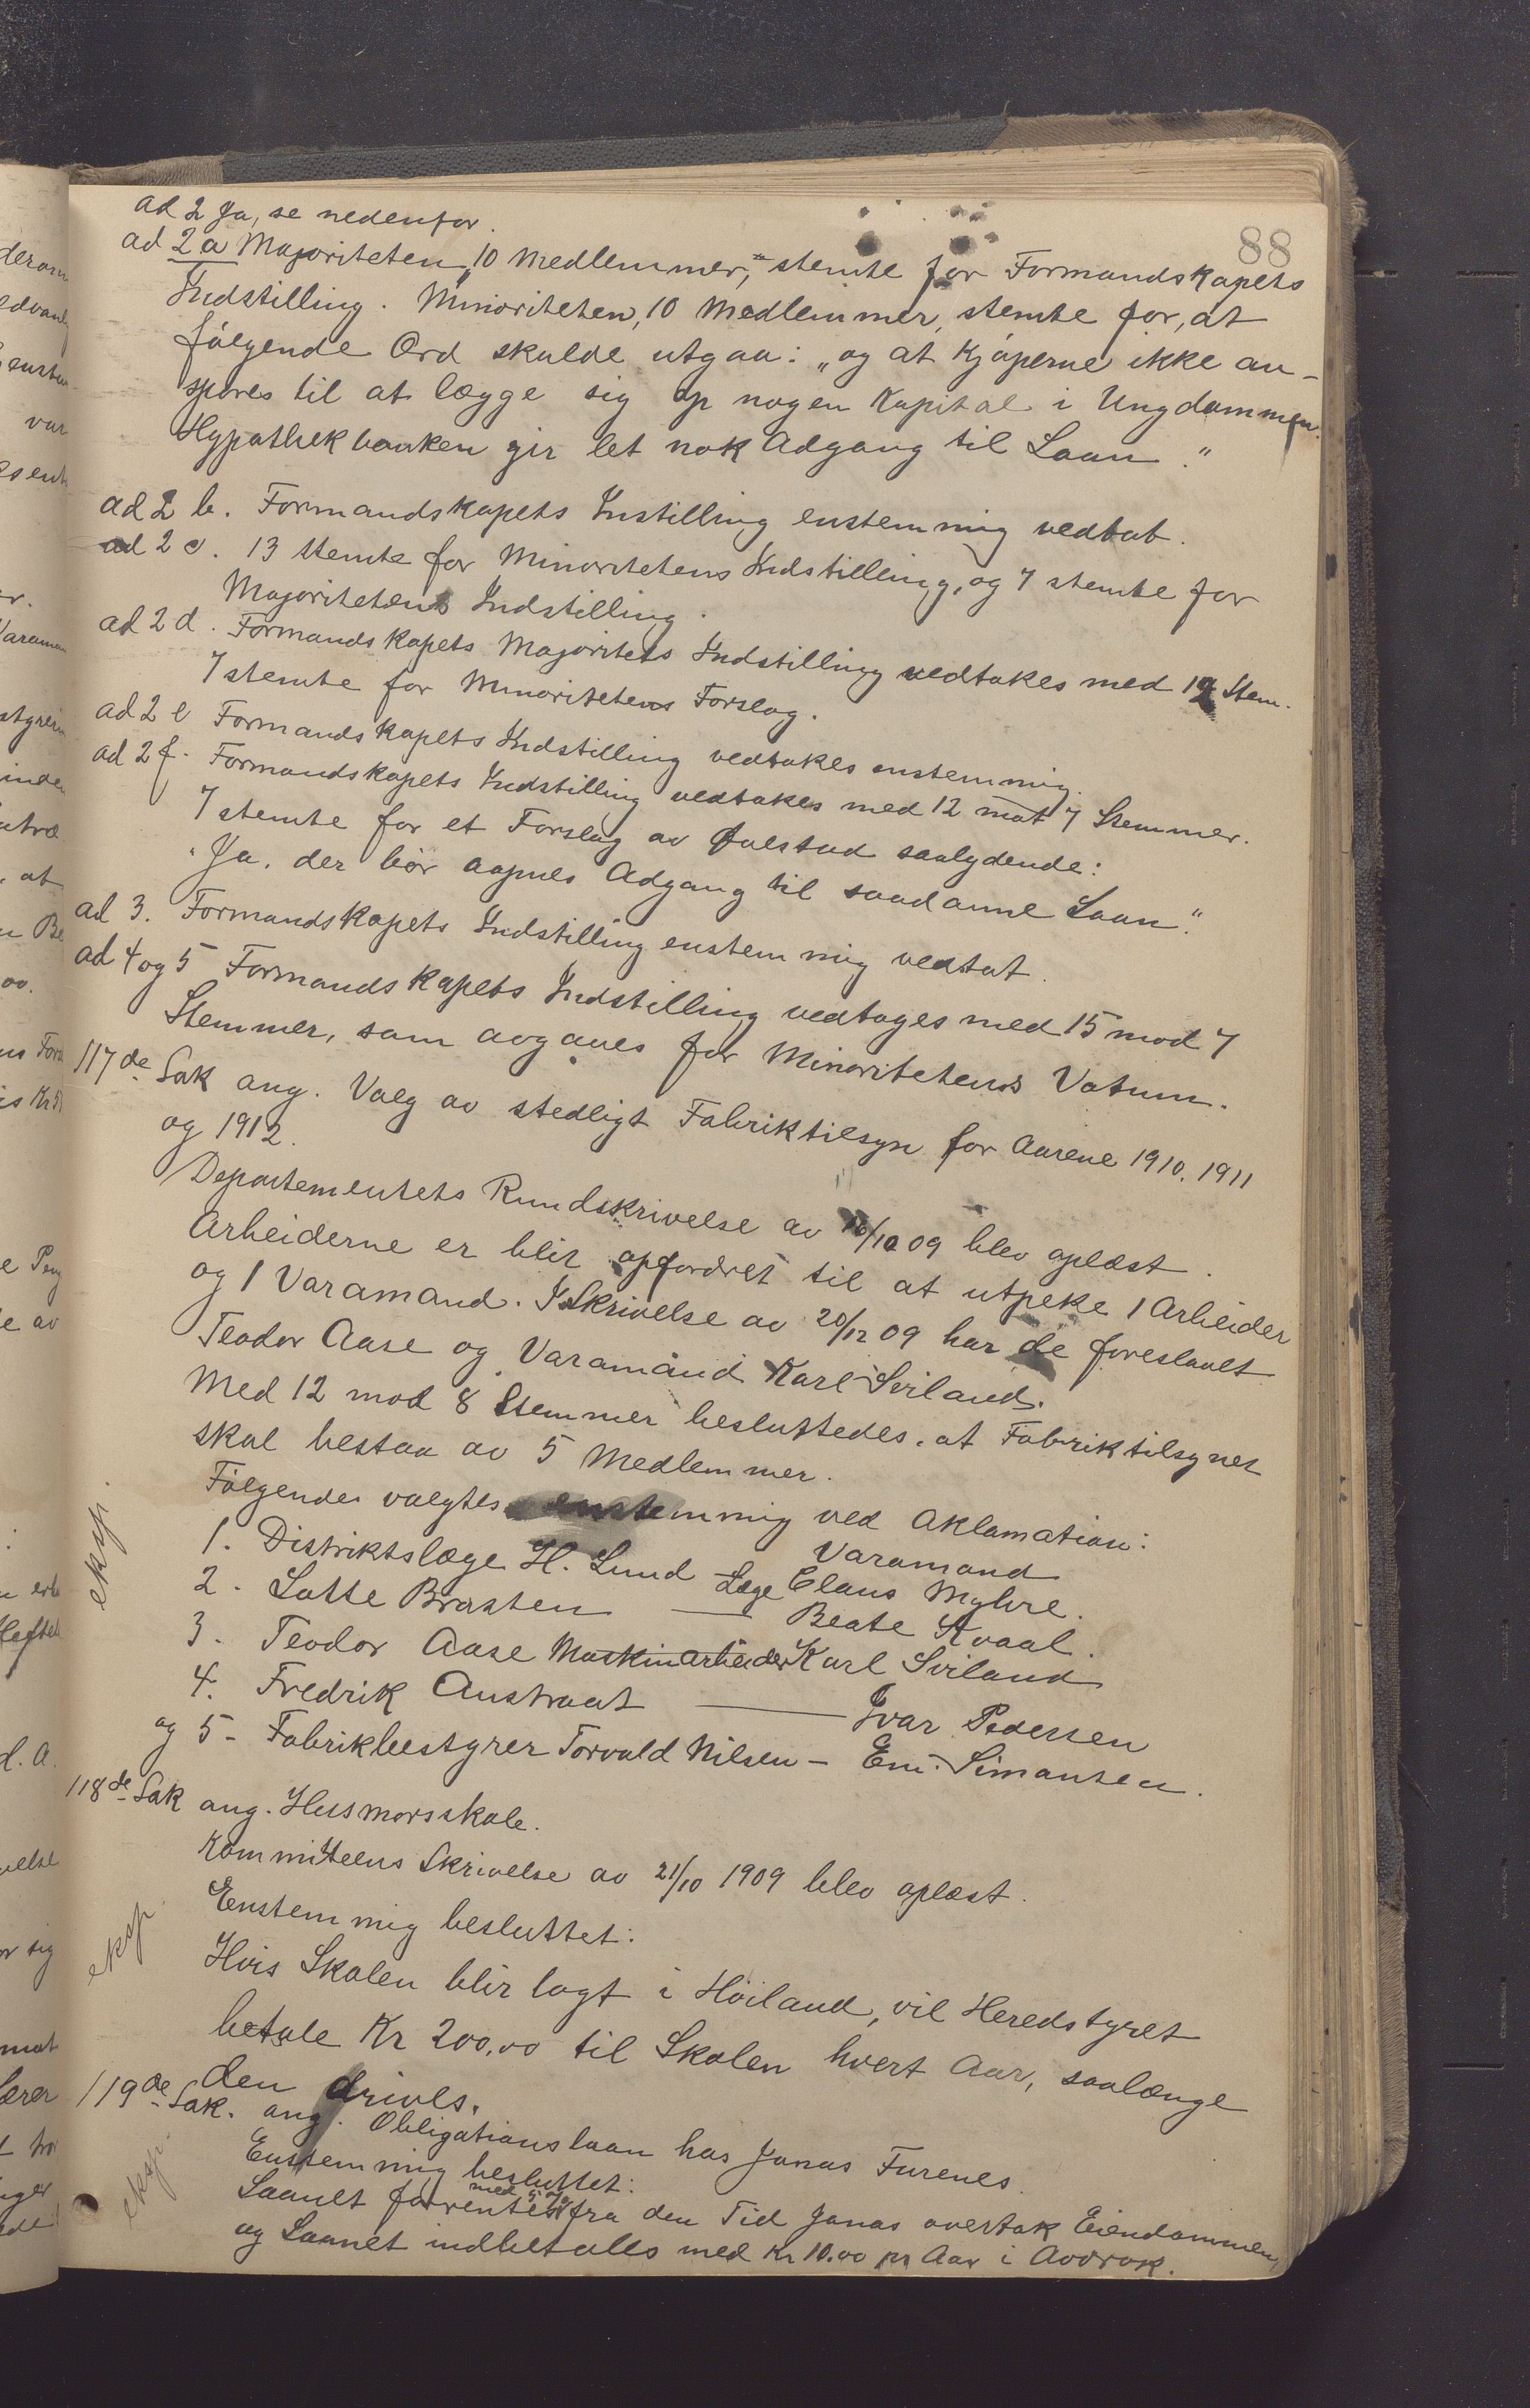 88
ad 2 Ja, se nedenfor.
ad 2 a Majoriteten, 10 Medlemmer, stemte for Formandskapets
Indstilling. Minoriteten, 10 Medlemmer, stemte for, at
følgende Ord skulde utgaa: „og at Kjøperne ikke an-
spores til at lægge sig op nogen Kapital i Ungdommen.
Hypothekbanken gir let nok Adgang til Laan."
ad 2 b. Formandskapets Instilling enstemmig vedtat.
ad 2 c. 13 stemte for Minoritetens Indstilling, og 7 stemte for
Majoritetens Indstilling.
ad 2 d. Formandskapets Majoritets Indstilling vedtakes med 12 Stem.
7 stemte for Minoritetens Forslag.
ad 2 e Formandskapets Indstilling vedtakes enstemmig.
ad 2 f. Formandskapets Indstilling vedtakes med 12 mot 7 Stemmer.
7 stemte for et Forslag av saalydende:
"Ja, der bør aapnes Adgang til saadanne Laan."
ad 3. Formandskapets Indstilling enstemmig vedtat.
ad 4 og 5 Formandskapets Indstilling vedtoges med 15 mod 7
Stemmer, som avgaves for Minoritetens Votum.
117de Sak ang. Valg av stedligt Fabriktilsyn for Aarene 1910, 1911
og 1912.
Departementets Rundskrivelse av 16/10 09 blev oplæst.
Arbeiderne er blit opfordret til at utpeke 1 Arbeider
og 1 Varamand. I Skrivelse av 20/12 09 har de foreslaaet
Teodor Aase og Varamand Karl Sviland.
Med 12 mod 8 Stemmer besluttedes, at Fabriktilsynet
skal bestaa av 5 Medlemmer.
eksp.
Følgende valgtes enstemmig ved Aklamation:
Varamand
1. Distriktslæge H. Lund – Læge Claus Myhre.
2. Lotte Brasten — Beate Kvaal.
3. Teodor Aase Maskinarbeider Karl Sviland
4. Fredrik Austraat — Ivar Pedersen
og 5 - Fabrikbestyrer Torvald Nilsen – Em. Simonsen.
118de Sak ang. Husmorsskole.
Kommiteens Skrivelse av 21/10 1909 blev oplæst.
eksp.
Enstemmig besluttet:
Hvis Skolen blir lagt i Høiland, vil Heredstyret
betale Kr 200.00 til Skolen hvert Aar, saalænge
den drives.
119de Sak. ang. Obligationslaan hos Jonas Furenes.
eksp.
Enstemmig besluttet:
Laanet forrentes med 5 % fra den Tid Jonas overtok Eiendommen,
og Laanet indbetales med Kr 10.00 pr Aar i Avdrak.